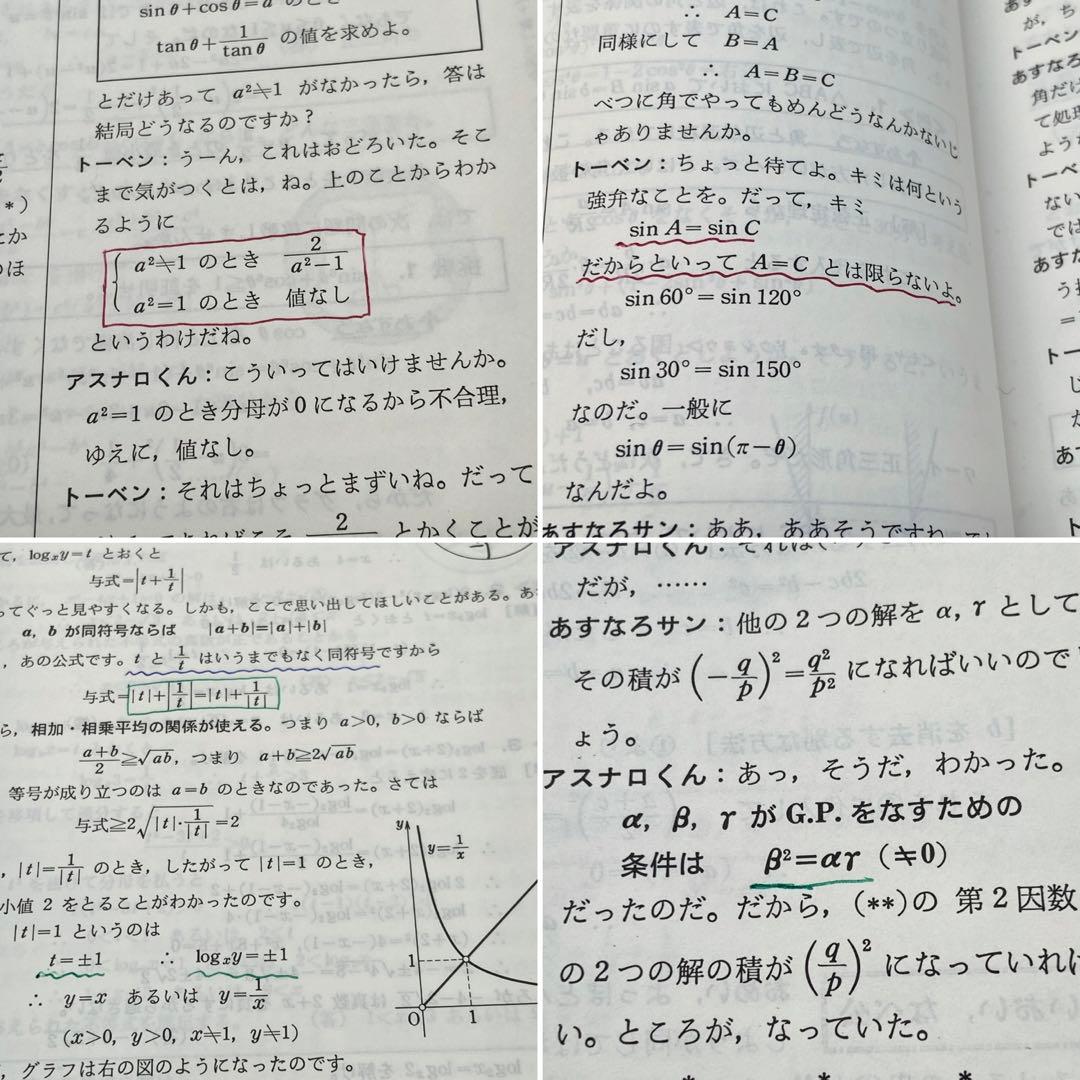 sin θ + cos θ = a のとき
tan θ + 1/tan θ の値を求めよ。
とだけあって a²≒1 がなかったら，答は
結局どうなるのですか？
トーベン：うーん，これはおどろいた。そこ
まで気がつくとは，ね。上のことからわか
るように
a²≒1 のとき 2/(a²−1)
a²=1 のとき 値なし
というわけだね。
アスナロくん：こういってはいけませんか。
a²=1 のとき分母が0になるから不合理，
ゆえに，値なし。
トーベン：それはちょっとまずいね。だって
2 とかくことが
*)
とか
のほ
∴ A=C
同様にして B=A
∴ A=B=C
べつに角でやってもめんどうなんかないじ
ゃありませんか。
トーベン：ちょっと待てよ。キミは何という
強弁なことを。だって，キミ
sin A = sin C
だからといって A=C とは限らないよ。
sin 60° = sin 120°
だし，
sin 30° = sin 150°
なのだ。一般に
sin θ = sin(π−θ)
なんだよ。
あすなろサン：ああ，ああそうですね
が，ち
トーベン
あすなろ
角だけ
て処理
ような
トーベン
ない
では
あすな
て，logₓy=t とおくと
与式=|t+1/t|
ってぐっと見やすくなる。しかも，ここで思い出してほしいことがある。あ
a, b が同符号ならば |a+b|=|a|+|b|
，あの公式です。t と 1/t はいうまでもなく同符号ですから
与式=|t|+|1/t|=|t|+1/|t|
ら，相加・相乗平均の関係が使える。つまり a>0, b>0 ならば
(a+b)/2≧√ab，つまり a+b≧2√ab
等号が成り立つのは a=b のときなのであった。さては
与式≧2√(|t|・1/|t|)=2
，|t|=1/|t| のとき，したがって |t|=1 のとき，
小値 2 をとることがわかったのです。
|t|=1 というのは
t=±1 ∴ logₓy=±1
∴ y=x あるいは y=1/x
(x>0, y>0, x≒1, y≒1)
，グラフは右の図のようになったのです。
y
y=1/x
1
O 1
アスナロくん：それは
だが，……
あすなろサン：他の2つの解を α, γ として
その積が (−q/p)²=q²/p² になればいいので
ょう。
アスナロくん：あっ，そうだ，わかった。
α, β, γ が G.P. をなすための
条件は β²=αγ (≒0)
だったのだ。だから，(**)の 第2因数
の2つの解の積が (q/p)² になっていれば
い。ところが，なっていた。
* * *